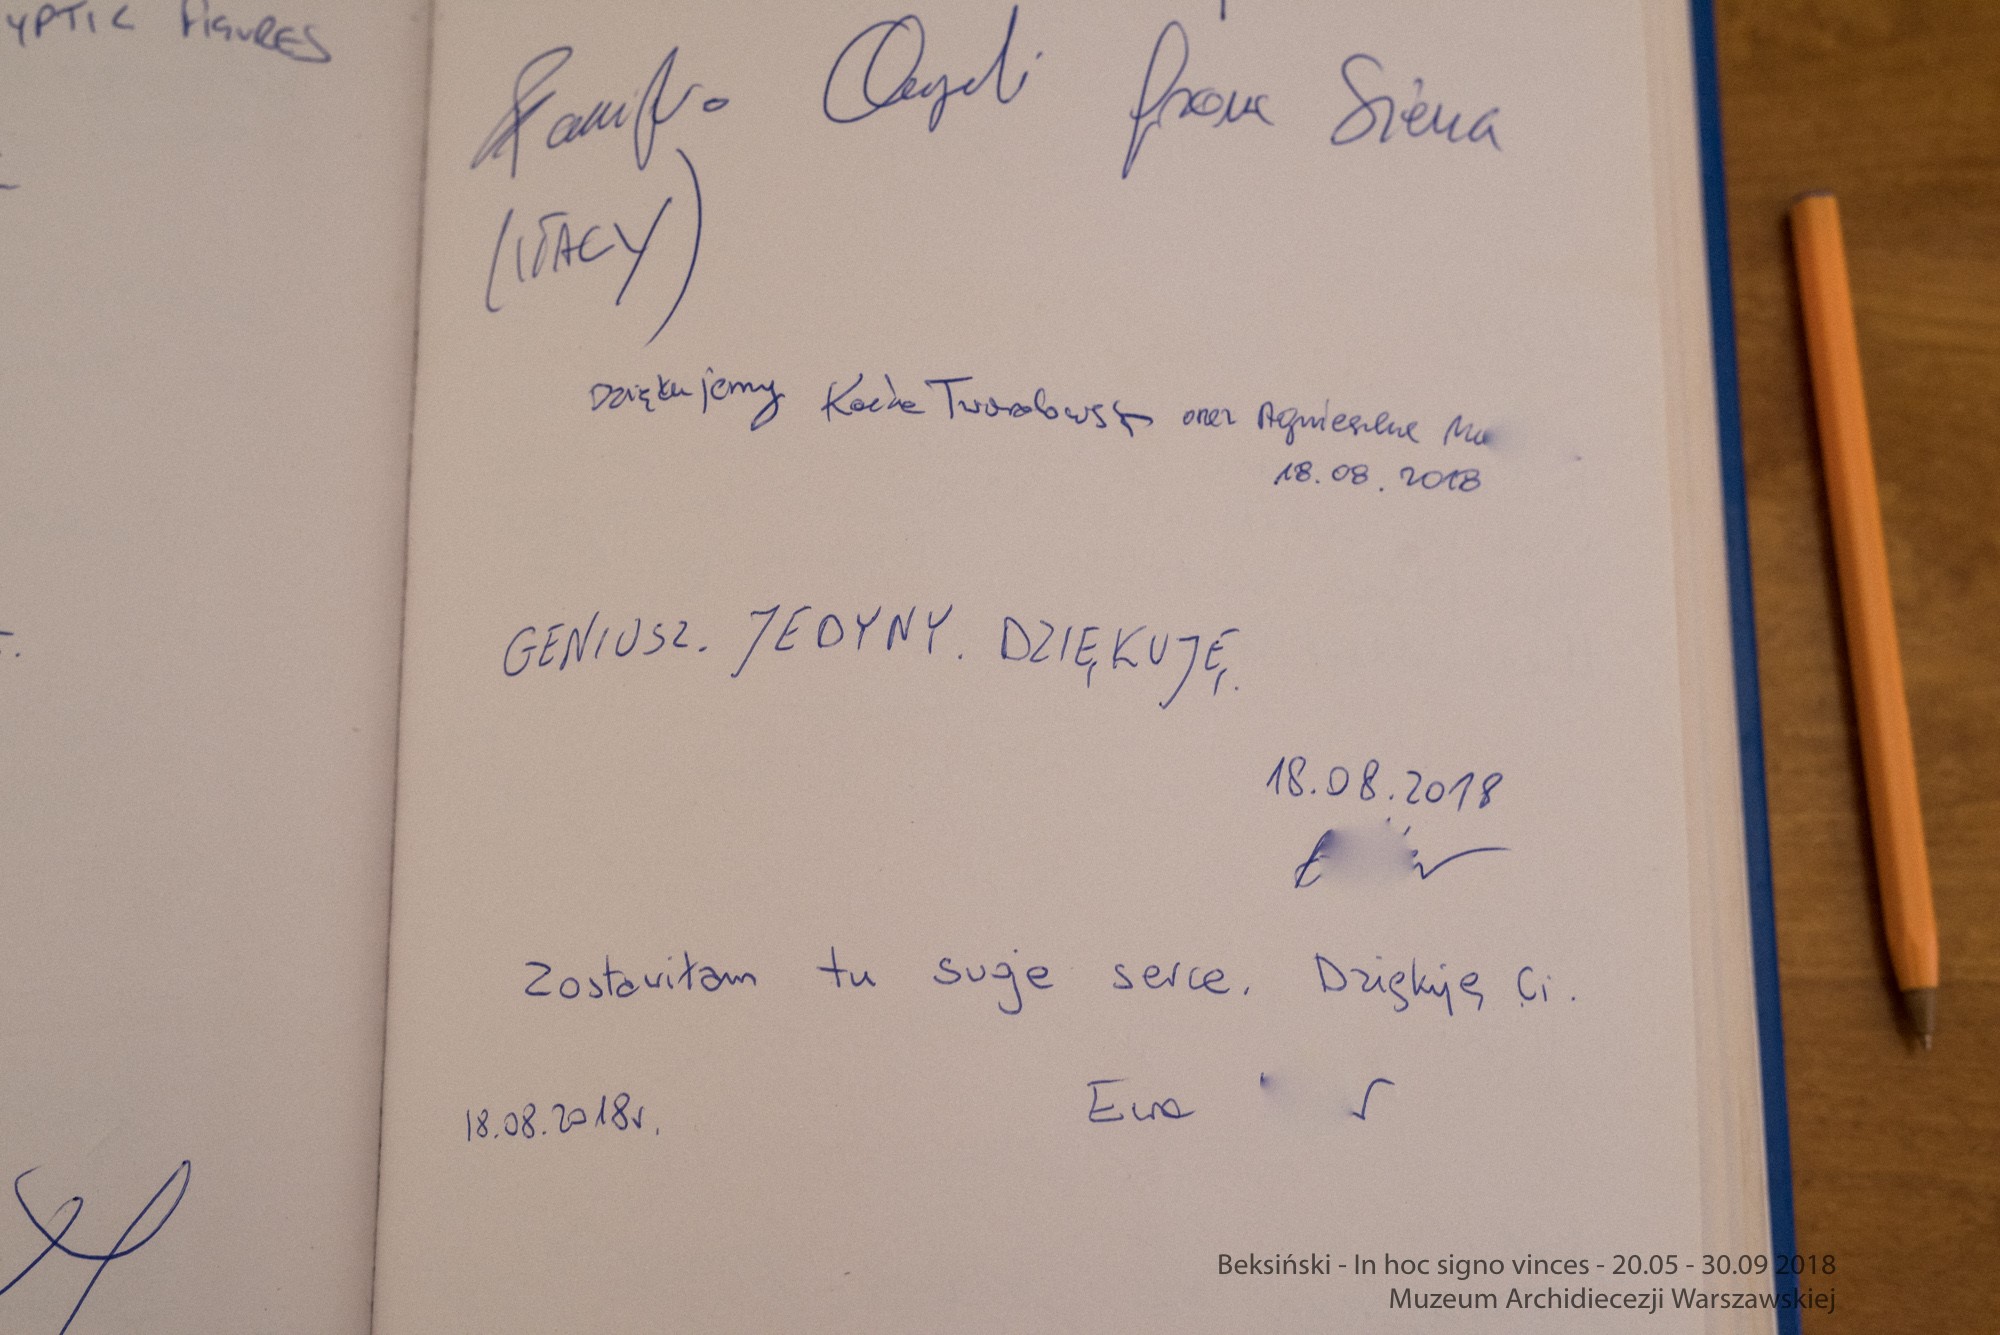 YPTIC FIGURES
from Siena
(ITALY)
Dziękujemy Kocha oraz Agnieszka
18.08.2018
GENIUSZ. JEDYNY. DZIĘKUJĘ.
18.08.2018
Zostawiłam tu swoje serce. Dziękuję Ci.
Ewa
18.08.2018r.
Beksiński - In hoc signo vinces - 20.05 - 30.09 2018
Muzeum Archidiecezji Warszawskiej